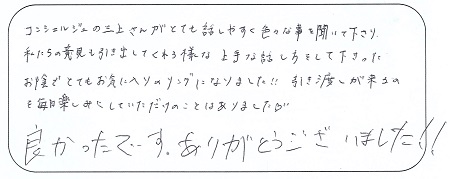 コンシェルジュの三上さんがとても話しやすく色々な事を聞いて下さり、
私たちの意見も引き出してくれる様な上手な話し方をして下さった
お陰でとてもお気に入りのリングになりました!! 引き渡しが来るの
を毎日楽しみにしていただけのことはありました
良かったでーす。ありがとうございました!!